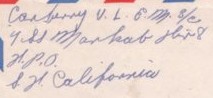 Carberry V. L. E. M. 3/c
U.SS Markab
F.P.O.
S. F. California